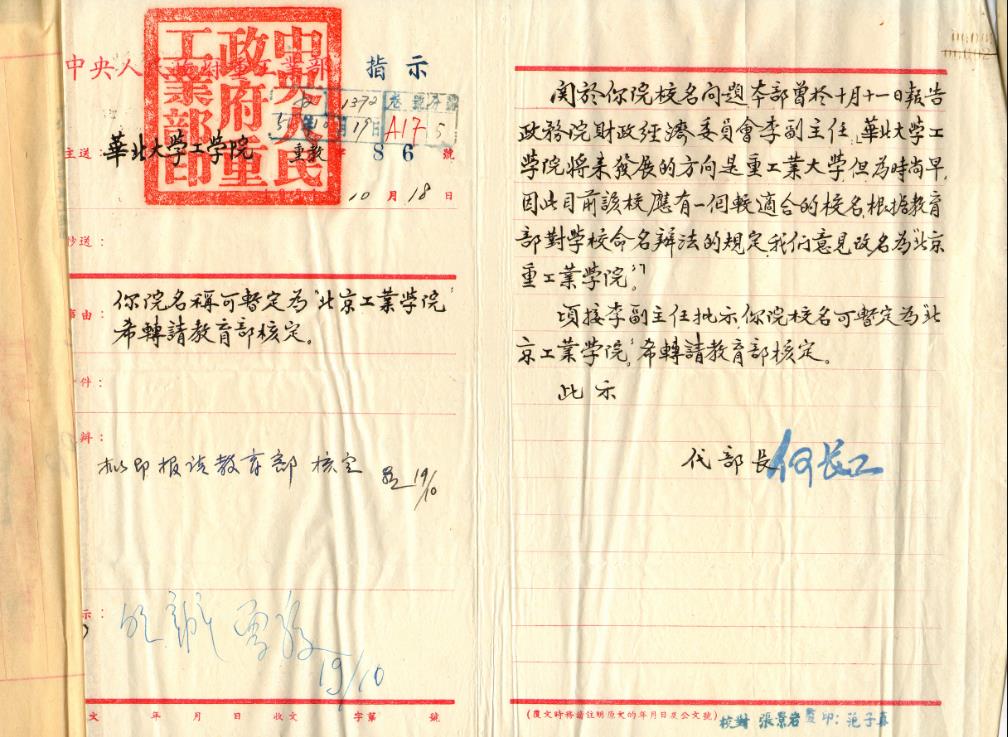 中央人民政府重工業部 指示
中央人民
政府重
工業部印
1372
19日
A17
5
主送：華北大学工学院 重教字 86 號
10月18日
抄送：
事由：你院名稱可暫定為“北京工業学院”
希轉請教育部核定。
件：
辦：
拟即报请教育部核定 19/10
示：
19/10
文 年 月 日 收文 字第 號
関於你院校名问题本部曾於十月十一日報告
政務院財政經濟委員會李副主任，“華北大學工
学院將来發展的方向是重工業大学但為時尚早，
因此目前該校應有一個較適合的校名，根据教育
部對学校命名辦法的規定，我们意見改名為“北京
重工業学院。”
頃接李副主任批示你院校名可暫定為“北
京工業学院”，希轉請教育部核定。
此示
代部長 何長工
(覆文時務請註明原文的年月日及公文號)
核對 張景岩 監印：范子真